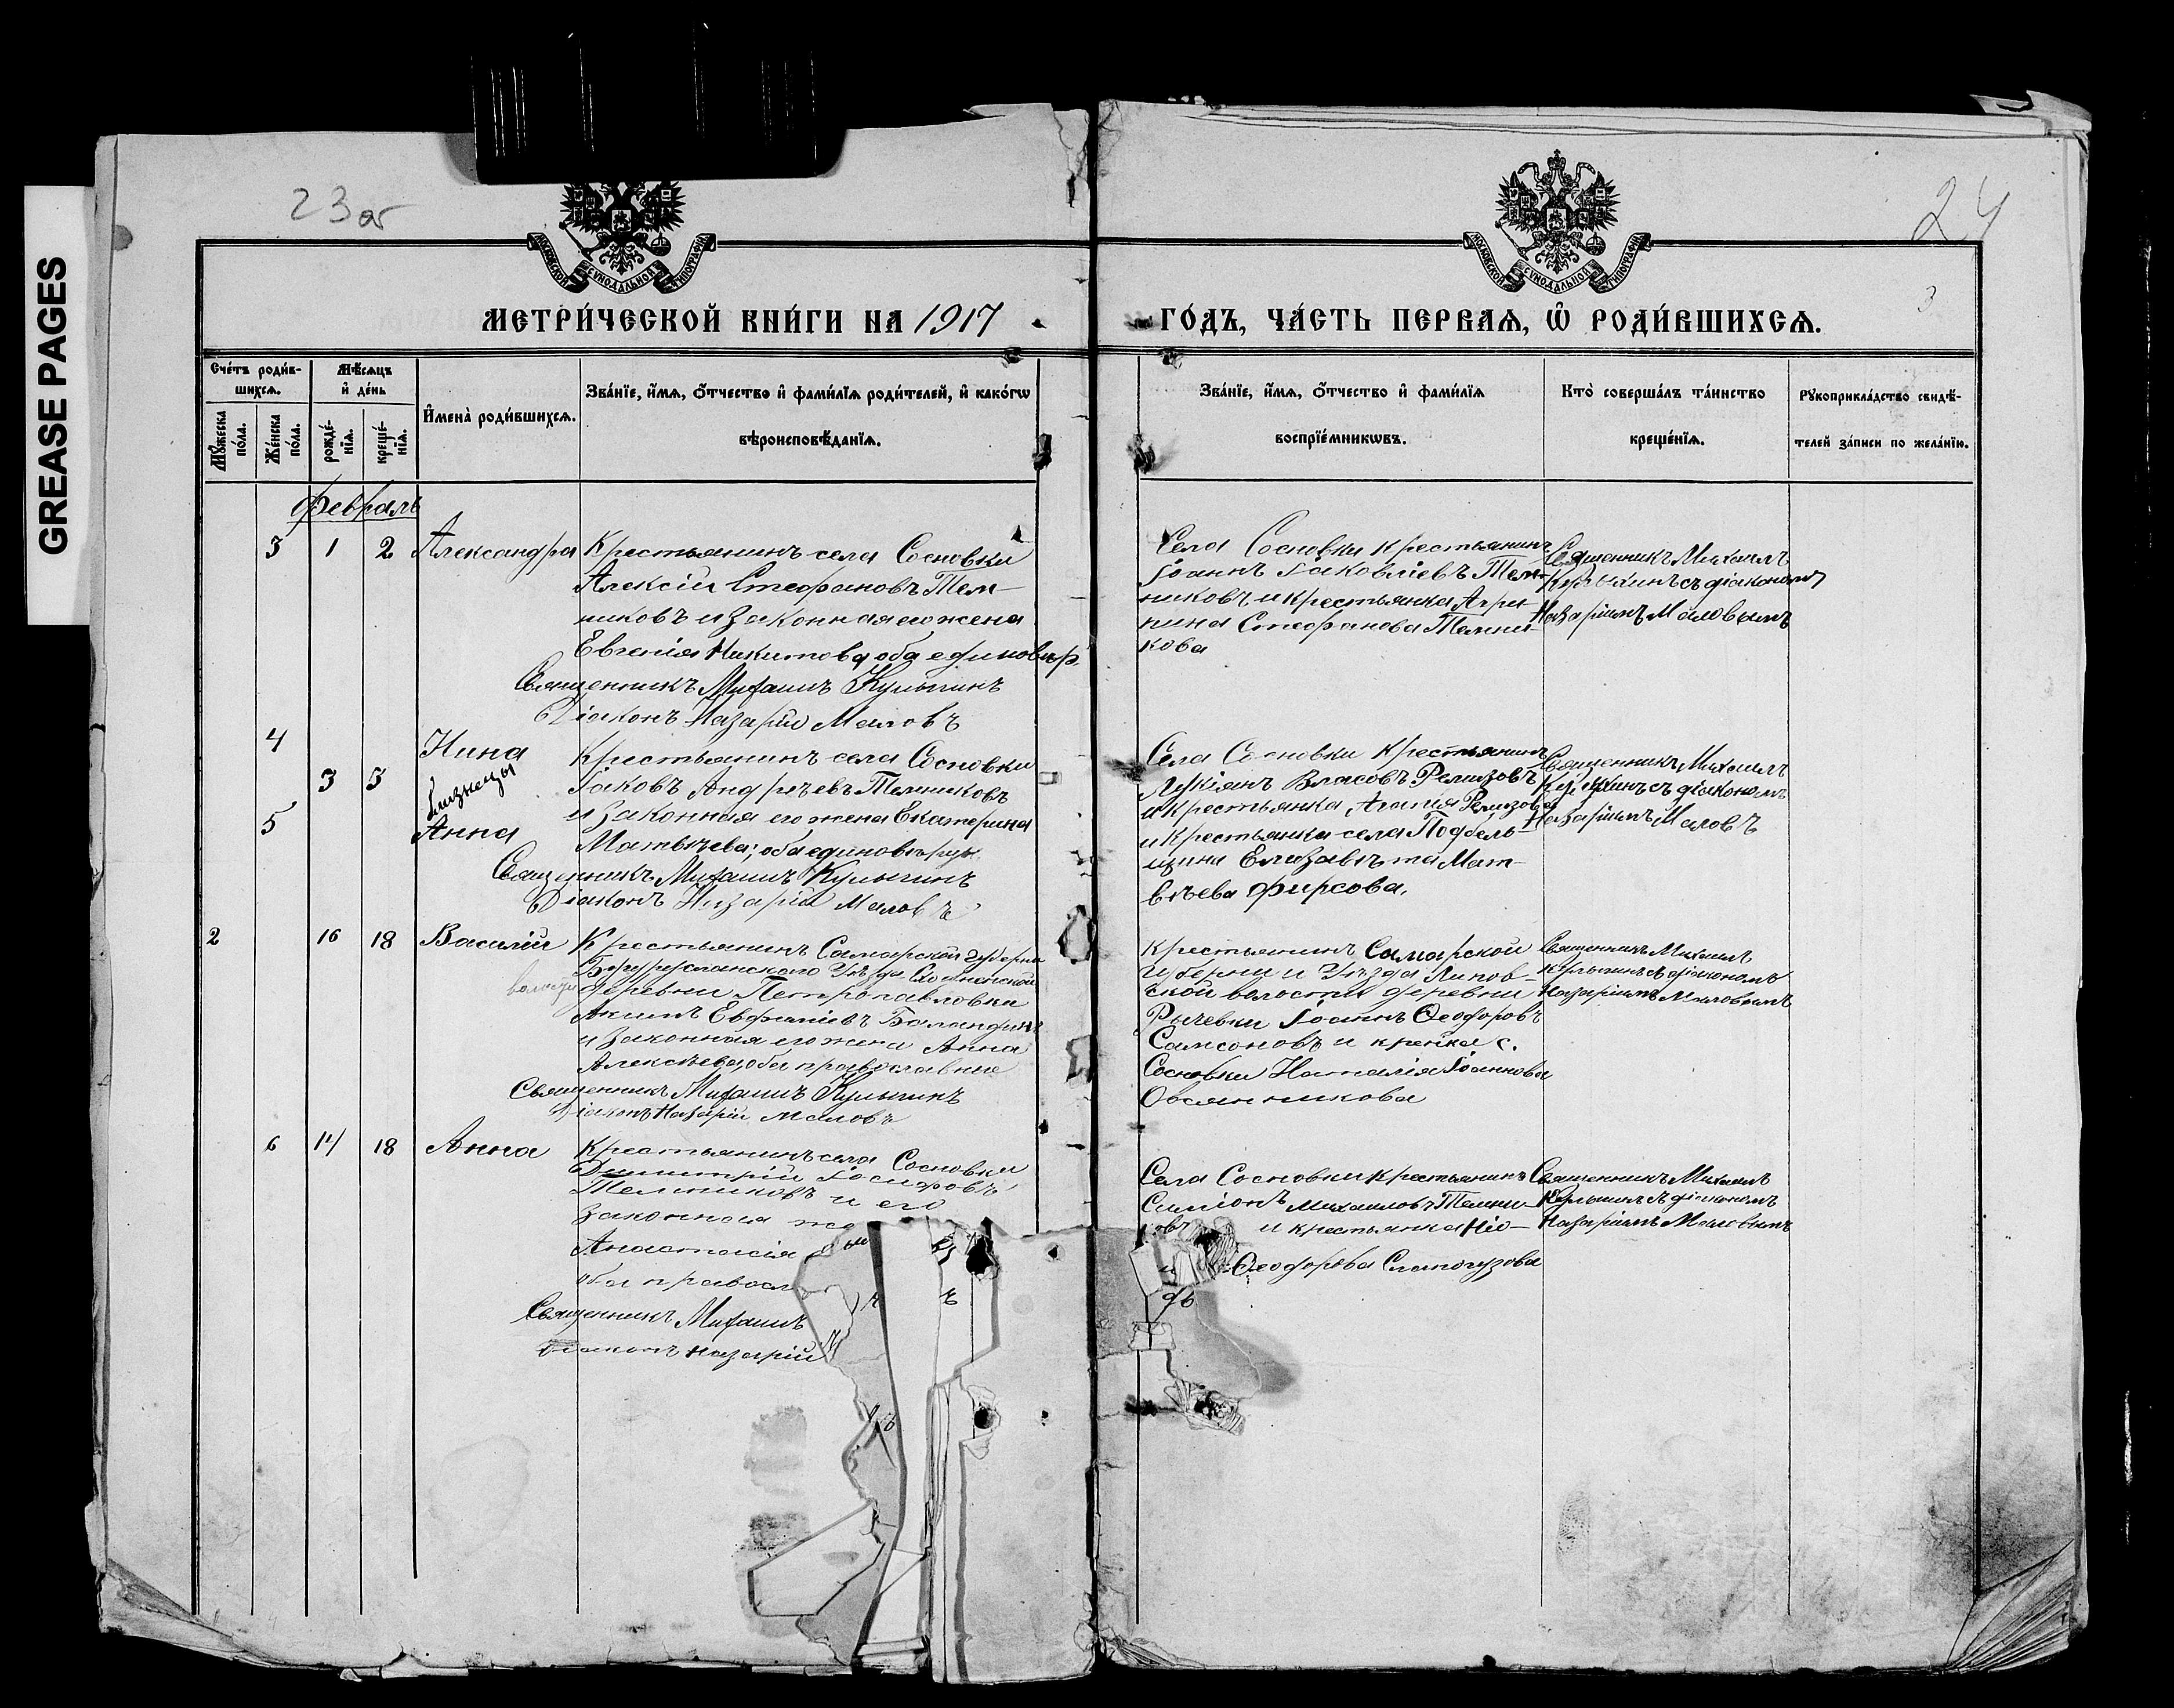 GREASE PAGES
23 об
24
3
МОСКОВСКОЙ СУНОДАЛЬНОЙ ТИПОГРАФІИ
МОСКОВСКОЙ СУНОДАЛЬНОЙ ТИПОГРАФІИ
МЕТРИ́ЧЕСКОЙ КНИ́ГИ НА 1917
ГО́ДЪ, ЧА́СТЬ ПЕ́РВАѦ, Ѽ РОДИ́ВШИХСѦ.
Сче́тъ роди́в-
шихсѧ.
Мꙋ́жеска по́ла.
Же́нска по́ла.
Мѣ́сѧцъ
и҆ де́нь
рожде́-
нїѧ.
креще́-
нїѧ.
И҆мена̀ роди́вшихсѧ.
Зва́нїе, и҆́мѧ, о҆́тчество и҆ фами́лїѧ роди́телей, и҆ како́гѡ
вѣроисповѣ́данїѧ.
Зва́нїе, и҆́мѧ, о҆́тчество и҆ фами́лїѧ
воспрїе́мникѡвъ.
Кто̀ соверша́лъ та́инство
креще́нїѧ.
Рꙋкоприкла́дство свидѣ́-
телей за́писи по жела́нїю.
Февраль
3 1 2 Александра
Крестьянинъ села Сосновки
Алексій Стефановъ Тем-
никовъ и законная его жена
Евгенія Никитова оба единовѣр.
Священникъ Михаилъ Кулыгинъ
Діаконъ Назарій Маловъ
Села Сосновки крестьянинъ
Іоаннъ Іаковліевъ Тем-
никовъ и крестьянка Агри-
пина Стефанова Темни-
кова
Священникъ Михаилъ
Кулыгинъ съ діакономъ
Назаріемъ Маловымъ
4 Нина
3 5 близнецы
5 Анна
Крестьянинъ села Сосновки
Іаковъ Андреевъ Темниковъ
и законная его жена Екатерина
Матвѣева; оба единовѣрцы
Священникъ Михаилъ Кулыгинъ
Діаконъ Назарій Маловъ
Села Сосновки крестьянинъ
Лукіянъ Власовъ Ремизовъ
и крестьянка Агапія Ремизова
и крестьянка села Подбель-
щина Елизавѣта Мат-
вѣева Фирсова.
Священникъ Михаилъ
Кулыгинъ съ діакономъ
Назаріемъ Маловъ
2 16 18 Василій
Крестьянинъ Самарской губерніи
Бугурусланскаго Уѣзда
волости деревни Петропавловки
Акимъ Евфиміевъ Баландинъ
и законная его жена Анна
Алексѣева, оба православные
Священникъ Михаилъ Кулыгинъ
Діаконъ Назарій Маловъ
Крестьянинъ Самарской
губерніи и Уѣзда Липов-
ской волости деревни
Рычевки Іоаннъ Ѳеодоровъ
Самсоновъ и кре-ка с.
Сосновки Наталія Іоаннова
Овсянникова
Священникъ Михаилъ
Кулыгинъ съ діакономъ
Назаріемъ Маловымъ
6 14 18 Анна
Крестьянинъ села Сосновки
Димитрій Іосифовъ
Темниковъ и его
законная же
Анастасія
оба правосл
Священникъ Михаилъ
Діаконъ Назарій
Села Сосновки крестьянинъ
Симіонъ Михаиловъ Темни-
ковъ и крестьянка
Ѳеодорова Слепогузова
Священникъ Михаилъ
Кулыгинъ съ діакономъ
Назаріемъ Маловымъ